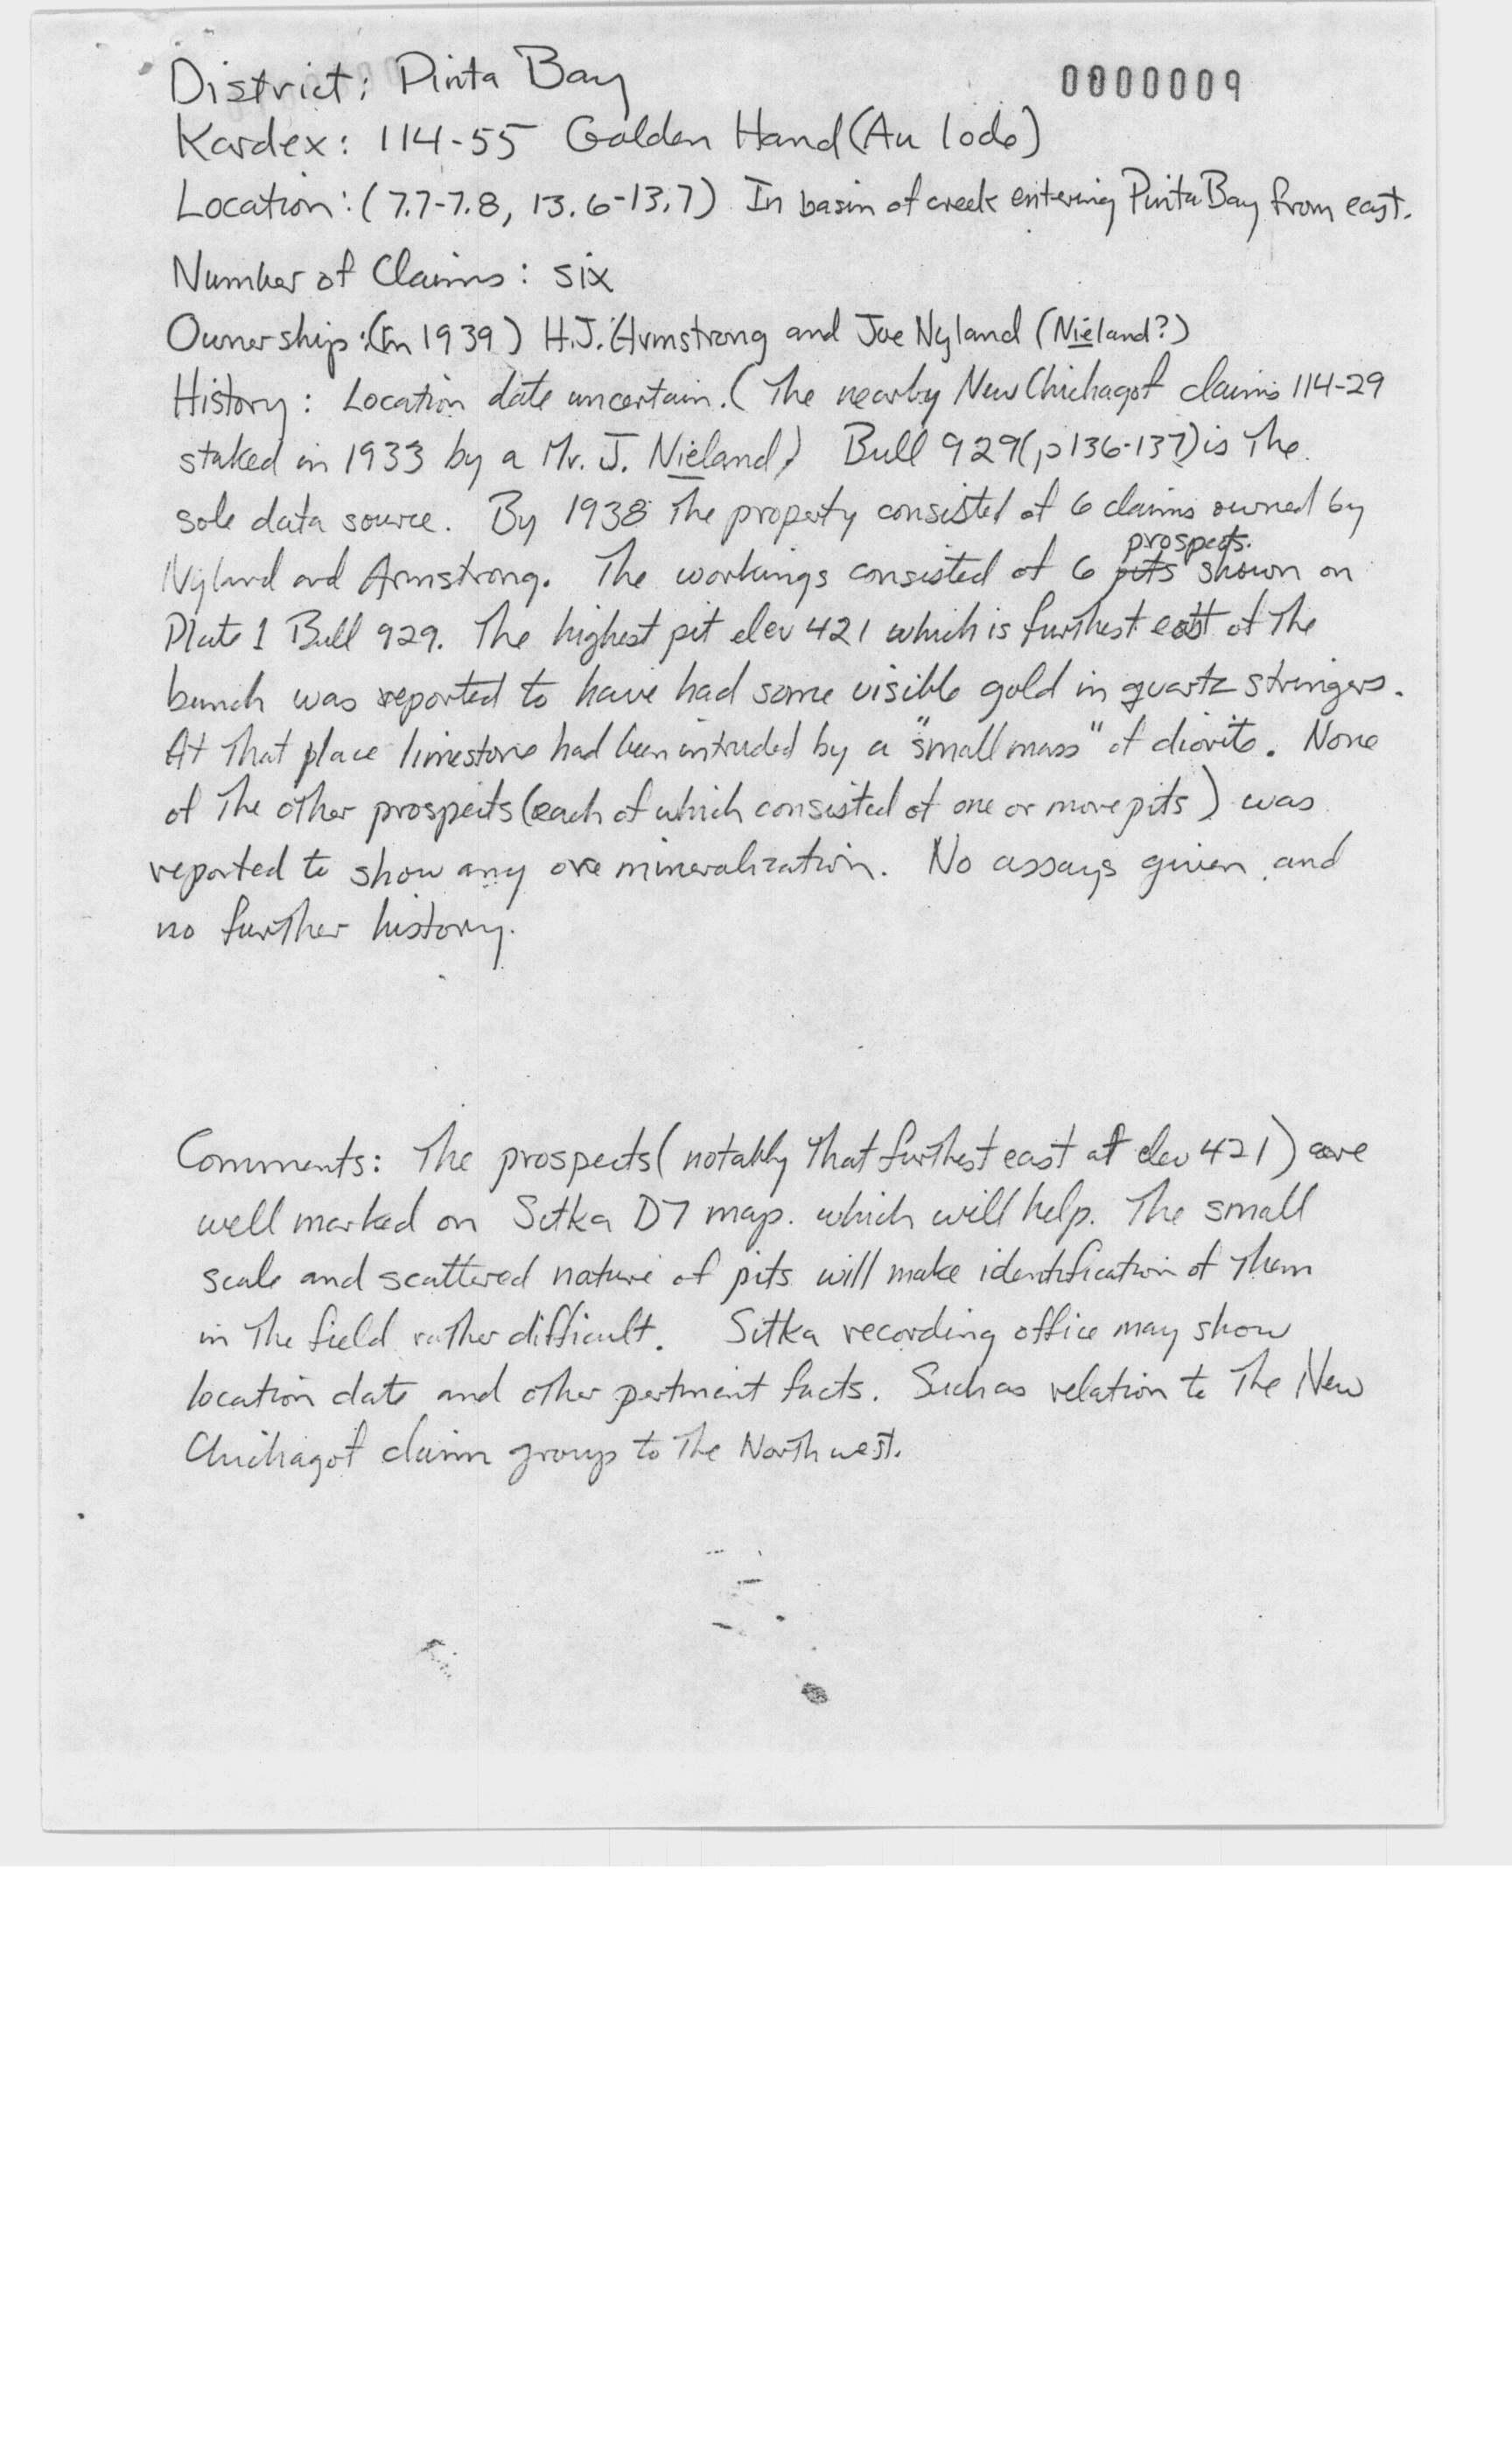 District: Pinta Bay
0000009
Kardex: 114-55 Golden Hand (Au lode)
Location: (7.7-7.8, 13.6-13.7) In basin of creek entering Pinta Bay from east.
Number of Claims: six
Ownership: (In 1939) H.J. Armstrong and Joe Nyland (Nieland?)
History: Location date uncertain. (The nearby New Chichagof claims 114-29
staked in 1933 by a Mr. J. Nieland) Bull 929(p136-137) is the
sole data source. By 1938 the property consisted of 6 claims owned by
prospects.
Nyland and Armstrong. The workings consisted of 6 pits shown on
Plate 1 Bull 929. The highest pit elev 421 which is furthest east of the
bunch was reported to have had some visible gold in quartz stringers.
At that place limestone had been intruded by a "small mass" of diorite. None
of the other prospects (each of which consisted of one or more pits) was
reported to show any ore mineralization. No assays given and
no further history.
Comments: The prospects (notably that furthest east at elev 421) are
well marked on Sitka D7 map. which will help. The small
scale and scattered nature of pits will make identification of them
in the field rather difficult. Sitka recording office may show
location date and other pertinent facts. Such as relation to the New
Chichagof claim group to the Northwest.